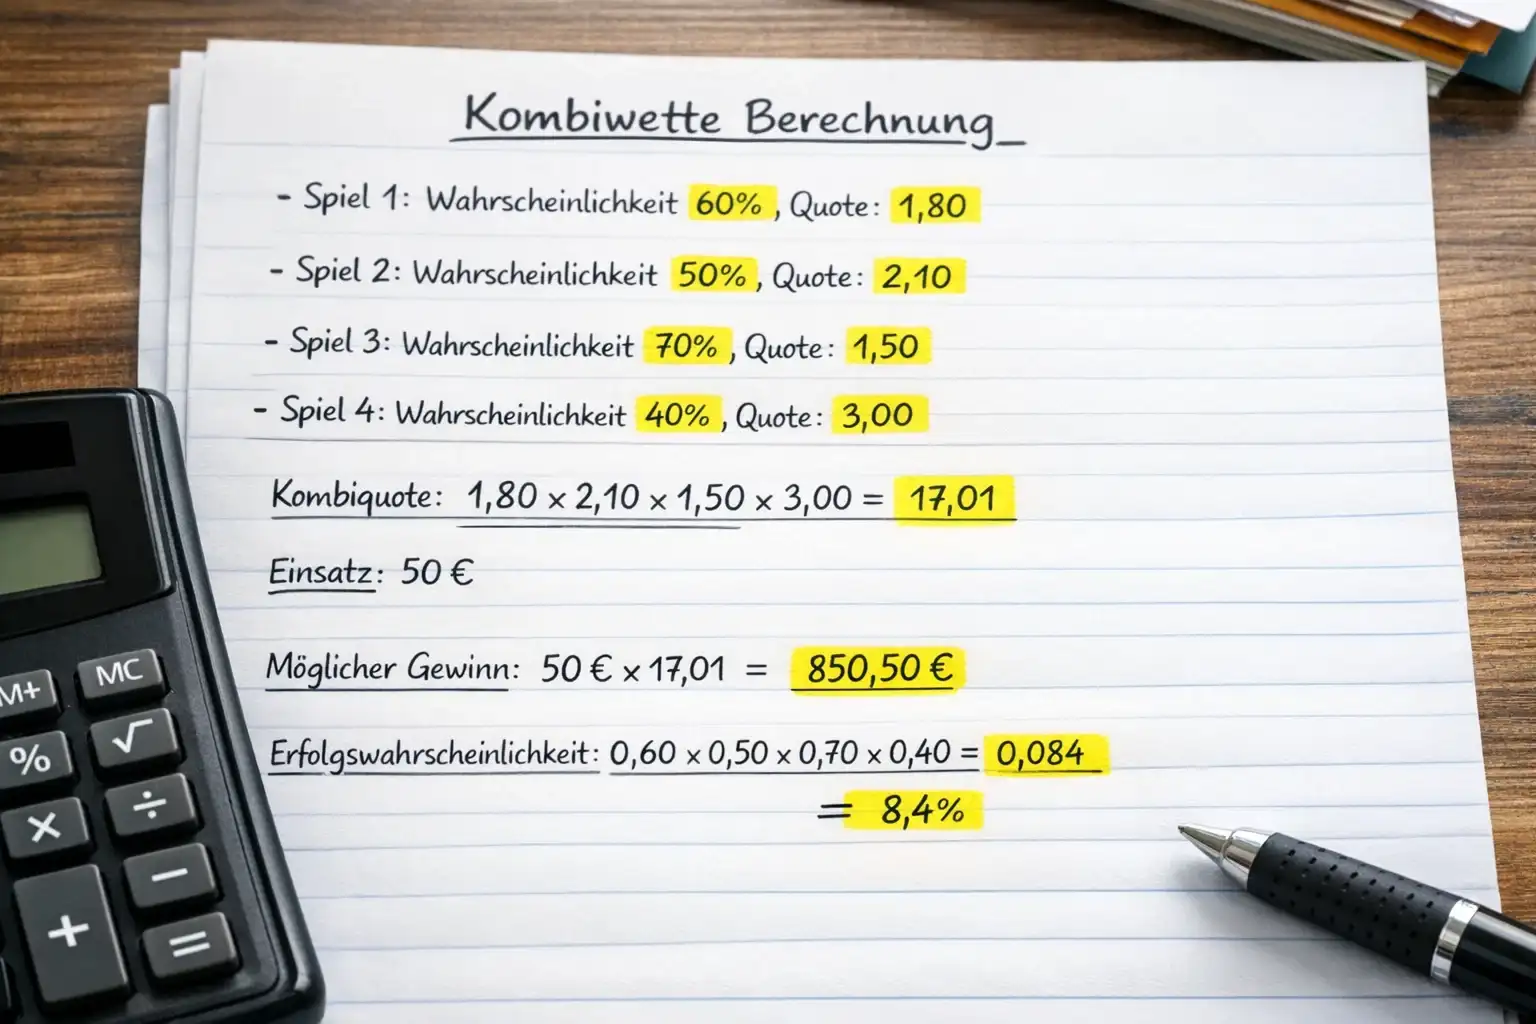 Kombiwette Berechnung
- Spiel 1: Wahrscheinlichkeit 60%, Quote: 1,80
- Spiel 2: Wahrscheinlichkeit 50%, Quote: 2,10
- Spiel 3: Wahrscheinlichkeit 70%, Quote: 1,50
- Spiel 4: Wahrscheinlichkeit 40%, Quote: 3,00
Kombiquote: 1,80 × 2,10 × 1,50 × 3,00 = 17,01
Einsatz: 50 €
Möglicher Gewinn: 50 € × 17,01 = 850,50 €
Erfolgswahrscheinlichkeit: 0,60 × 0,50 × 0,70 × 0,40 = 0,084
= 8,4%
M+ MC
% √
× ÷
+ −
=